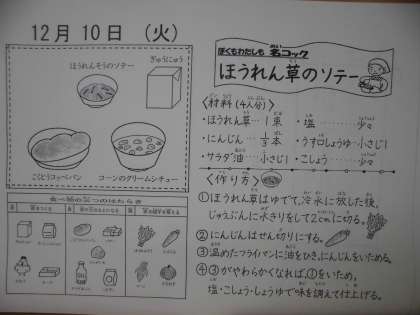 12月10日 (火)
ほうれんそうのソテー
ぎゅうにゅう
こくとうコッペパン
コーンのクリームシチュー
食べ物の三つのはたらき
ぼくもわたしも 名コック
ほうれん草のソテー
〈材料(4人分)〉
・ほうれん草…1束
・塩……少々
・にんじん…⅓本
・うす口しょうゆ…小さじ1
・サラダ油…小さじ1
・こしょう……少々
〈作り方〉
①ほうれん草はゆでて、冷水に放した後、
じゅうぶんに水きりをして2cmに切る。
②にんじんはせん切りにする。
③温めたフライパンに油をひき、にんじんをいためる。
④③がやわらかくなれば、①をいため、
塩・こしょう・しょうゆで味を調えて仕上げる。